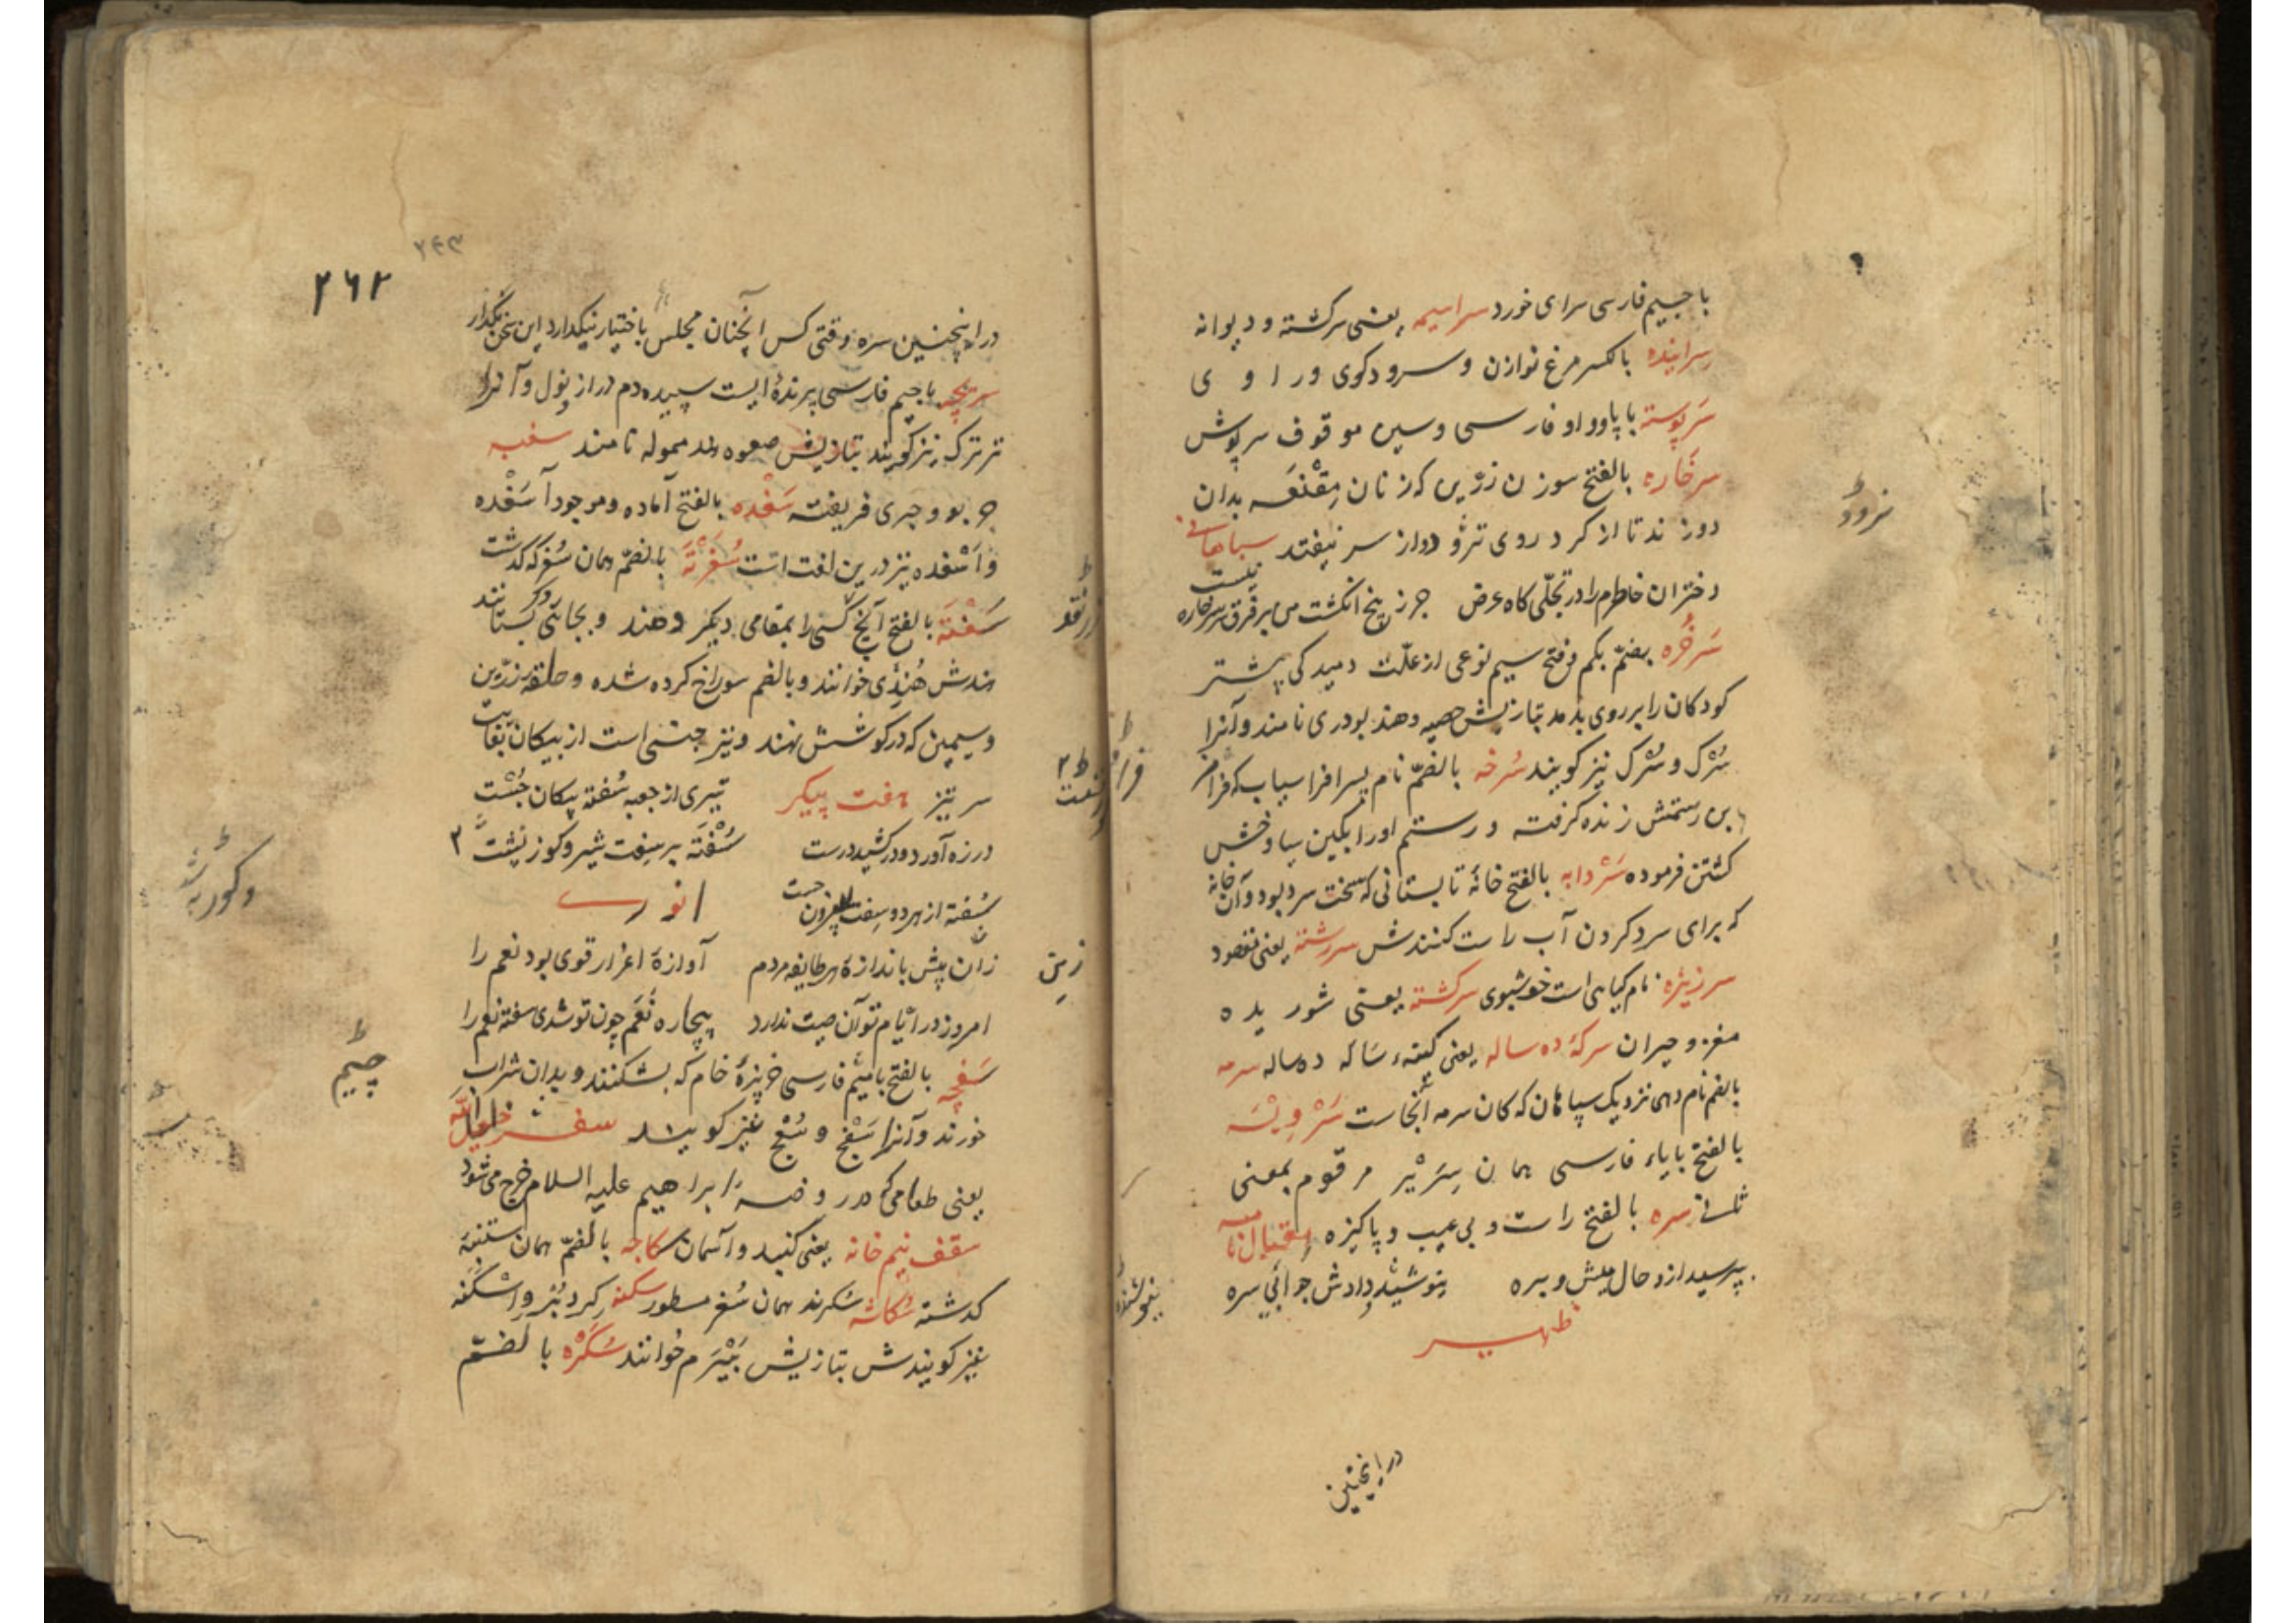 با جیم فارسی سرای خورد سراسیمه یعنی سرکشته و دیوانه
سراینده بالکسر مرغ نوازن و سرودکوی و ر ا و ی
سَرپوسته با پا و واو فارسی و سین موقوف سرپوش
سرخاره بالفتح سوزن زرّین که زنان مِقْنَعَه بدان
دوزند تا از کرد روی نرود و از سر نیفتد سپاهانی
دختران خاطرم را در تجلّی کاه عرض جز پنج انکشت من بر فرق سرخاره نیست
سَرخُره بضمّ یکم و فتح سیم نوعی از علّت دمیدکی بیشتر
کودکان را بر روی بدمد بتازیش حصبه و هند بودری نامند و آنرا
سُرْک و سُرْک نیز کویند سُرخه بالضمّ نام پسر افراسیاب که فرام
بن رستمش زنده کرفته و رستم او را بکین سیاوخش
کشتن فرموده سَرْدابه بالفتح خانهٔ تابستانی که سخت سرد بود و آن خانه
که برای سرد کردن آب راست کنندش سررشته یعنی مقصود
سرزیزه نام کیاهی است خوشبوی سرکشته یعنی شور ید ه
مغز و حیران سرکهٔ ده ساله یعنی کینهٔ سَاله ده ساله سرمه
بالضم نام دهی نزدیک سپاهان که کان سرمه آنجاست سَرْویْسَه
بالفتح با یاء فارسی همان سَرْیْر مرقوم بمعنی
ثلث سره بالفتح راست و بی عیب و پاکیزه اقبال نامه
بپرسید ازو حال میش و بره نیوشنده دادش جوابی سره
ظهیر
در اینچنین
نرود
نیوشنده
۲۶۲
در اینچنین سره وقتی کس آنچنان مجلس باختیار نیکدارد این سخن بگذار
سریچه با جیم فارسی پرندهٔ ایست سپیده دم دراز پول و آنرا
ترترک نیز کویند تبازیش صعوه هند ممولہ نامند سغبه
چربو و چیزی فریفته سَغْده بالفتح آماده و موجود آسَغْده
و اَسْغده نیز درین لغت است سُغُرْنَه بالضمّ همان سُغر که کذشت
سَفْتَه بالفتح آنچ کسی را بمقامی دیکر دهند و بجائی دکر بستانند
هندش هُنْدُی خوانند و بالضم سوراخ کرده شده و حلقه زرّین
و سیمین که در کوشش نهند و نیز جنسی است از پیکان بغایت
سر تیز هفت پیکر تیری از جعبه سُفته پیکان جُسْت
در زه آورد و در کشید درست سُفْتَه بر سفت شیر و کور نشست
سُفته از هر دو سفت بیرون جست انوری
زان پیش باندازهٔ هر طایفه مردم آوازهٔ اعزاز قوی بود نعم را
امروز در ایّام تو آن صیت ندارد بیچاره نَعَم چون تو شدی سفته نعم را
سَفچه بالفتح با جیم فارسی خربزهٔ خام که بشکنند و بدان شراب
خورند و آنرا سَفْج و سُفْج نیز کویند سفره خلیل الله
یعنی طعامی که در روضهٔ ابراهیم علیه السلام خرج می شود
سقف نیم خانه یعنی کنبد و آسمان سکاجه بالضمّ همان ستنبهٔ
کذشته سُکاشه سُکرند همان سُغر مسطور سکنه کرد بُر و اِسْکَنه
نیز کویندش تبازیش بَیْرَم خوانند سُکُرّه بالضمّ
زین
جیم